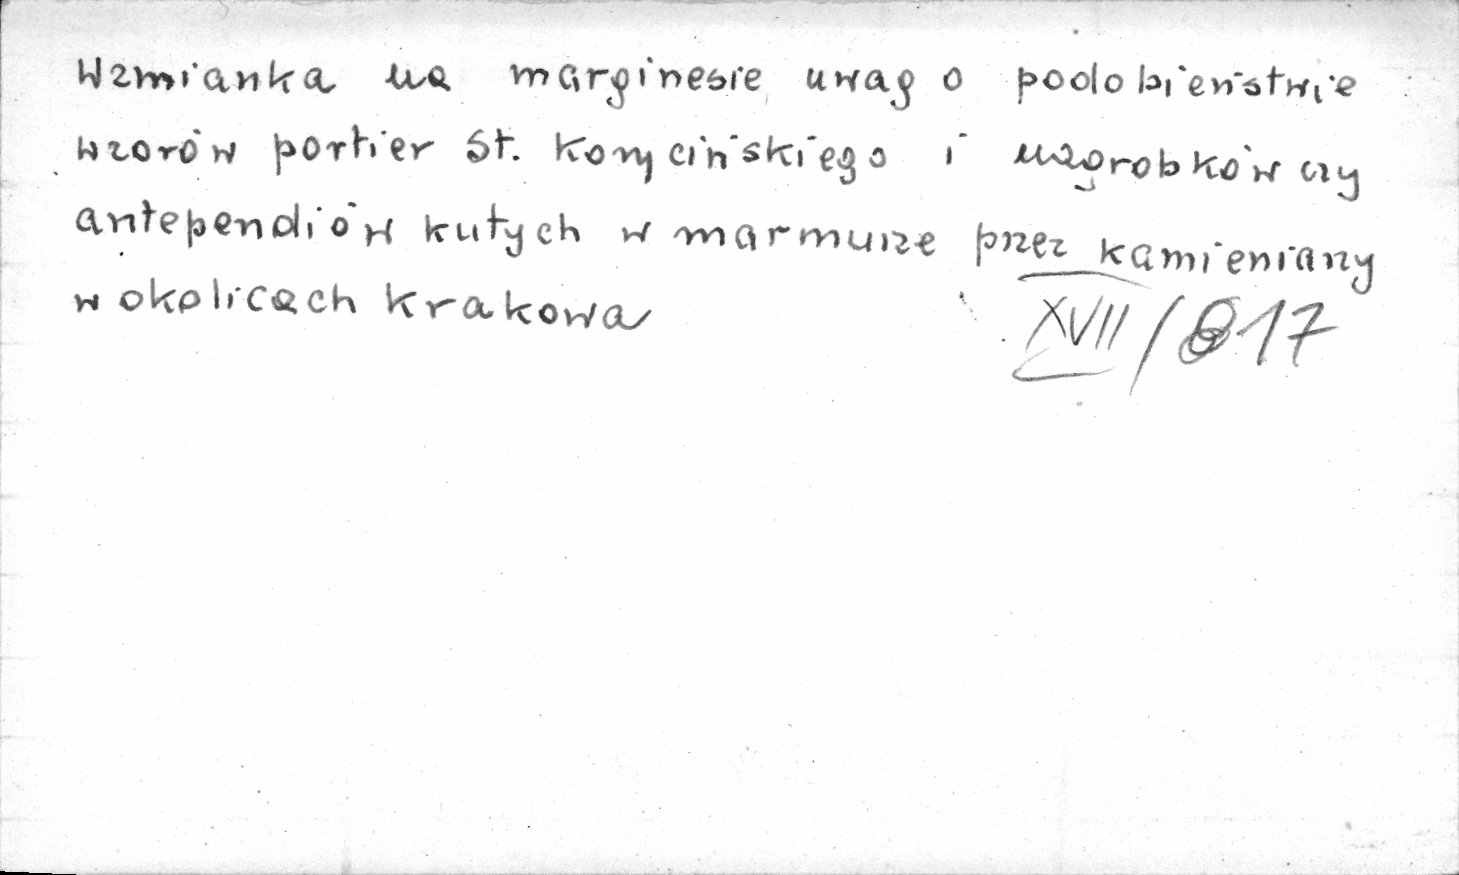 Wzmianka na marginesie uwag o podobieństwie
wzorów portier St. Korycińskiego i nagrobków czy
antependiów kutych w marmurze przez kamieniarzy
w okolicach Krakowa
XVII/817